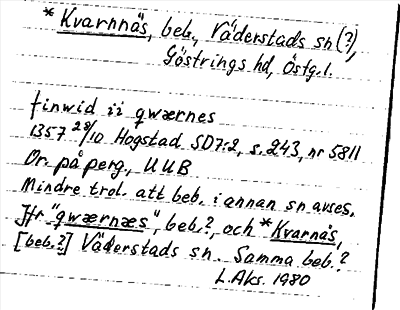 * Kvarnnäs, beb., Väderstads sn (?),
Göstrings hd, Östg.l.
finwid ii qwærnes
1357 28/10 Hogstad SD7:2, s. 243, nr 5811
Or. på perg., UUB
Mindre trol. att beb. i annan sn avses.
Jfr "qwærnæs", beb.?, och *Kvarnäs,
[beb.?] Väderstads sn. Samma beb.?
L. Aks. 1980